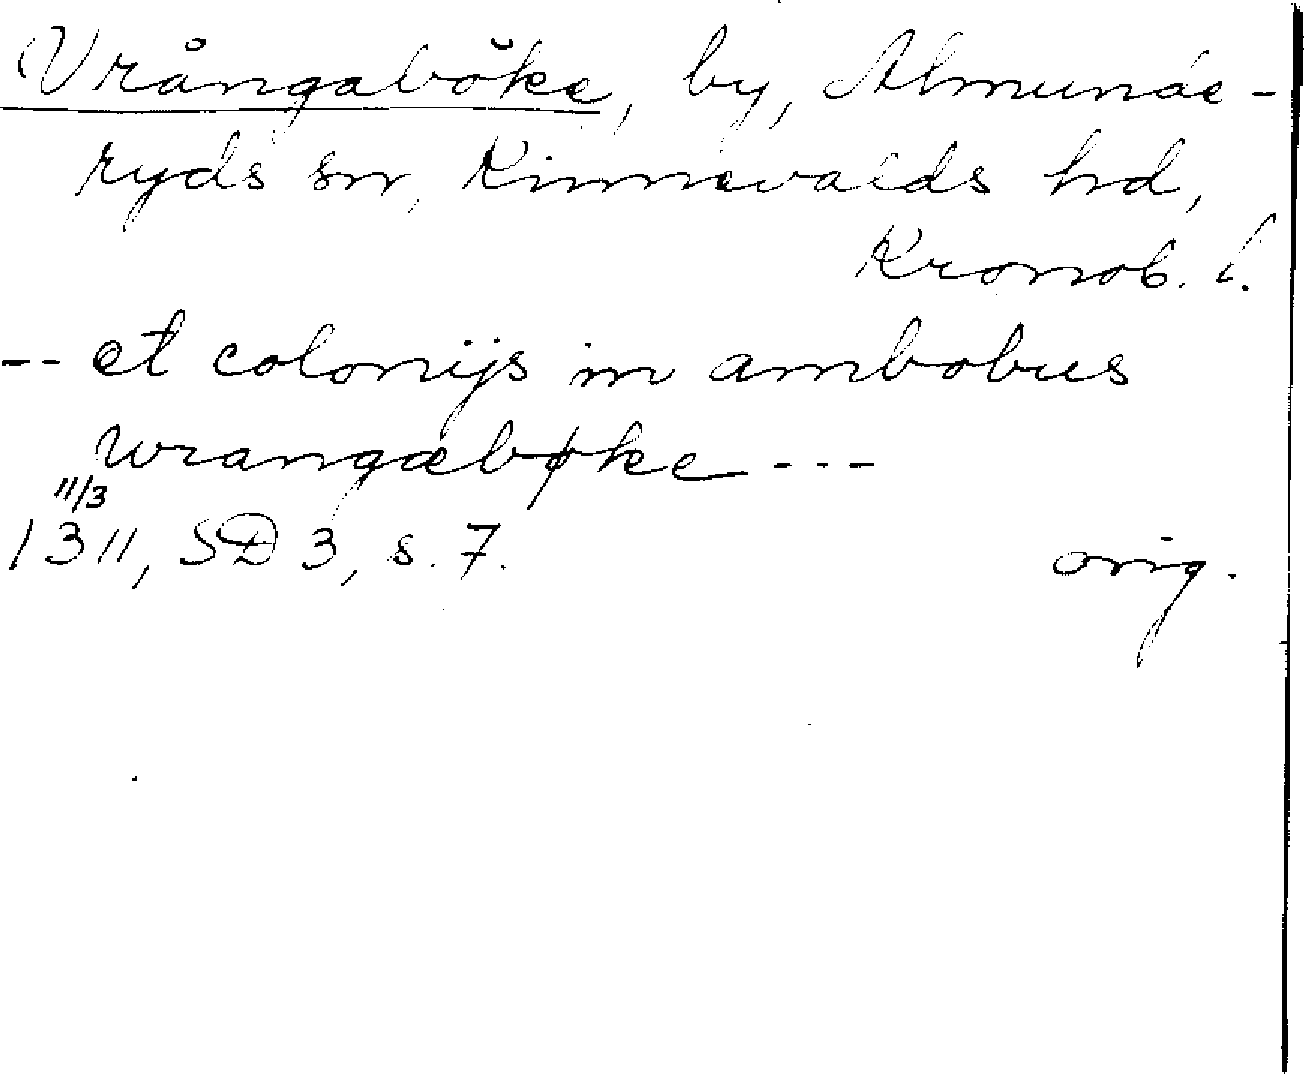 Vrångaböke, by, Almunds-
ryds sn, Kinnevalds hd,
Kronob. l.
-- et colonijs in ambobus
wrangæbøke ---
11/3
1311, SD 3, s. 7. orig.